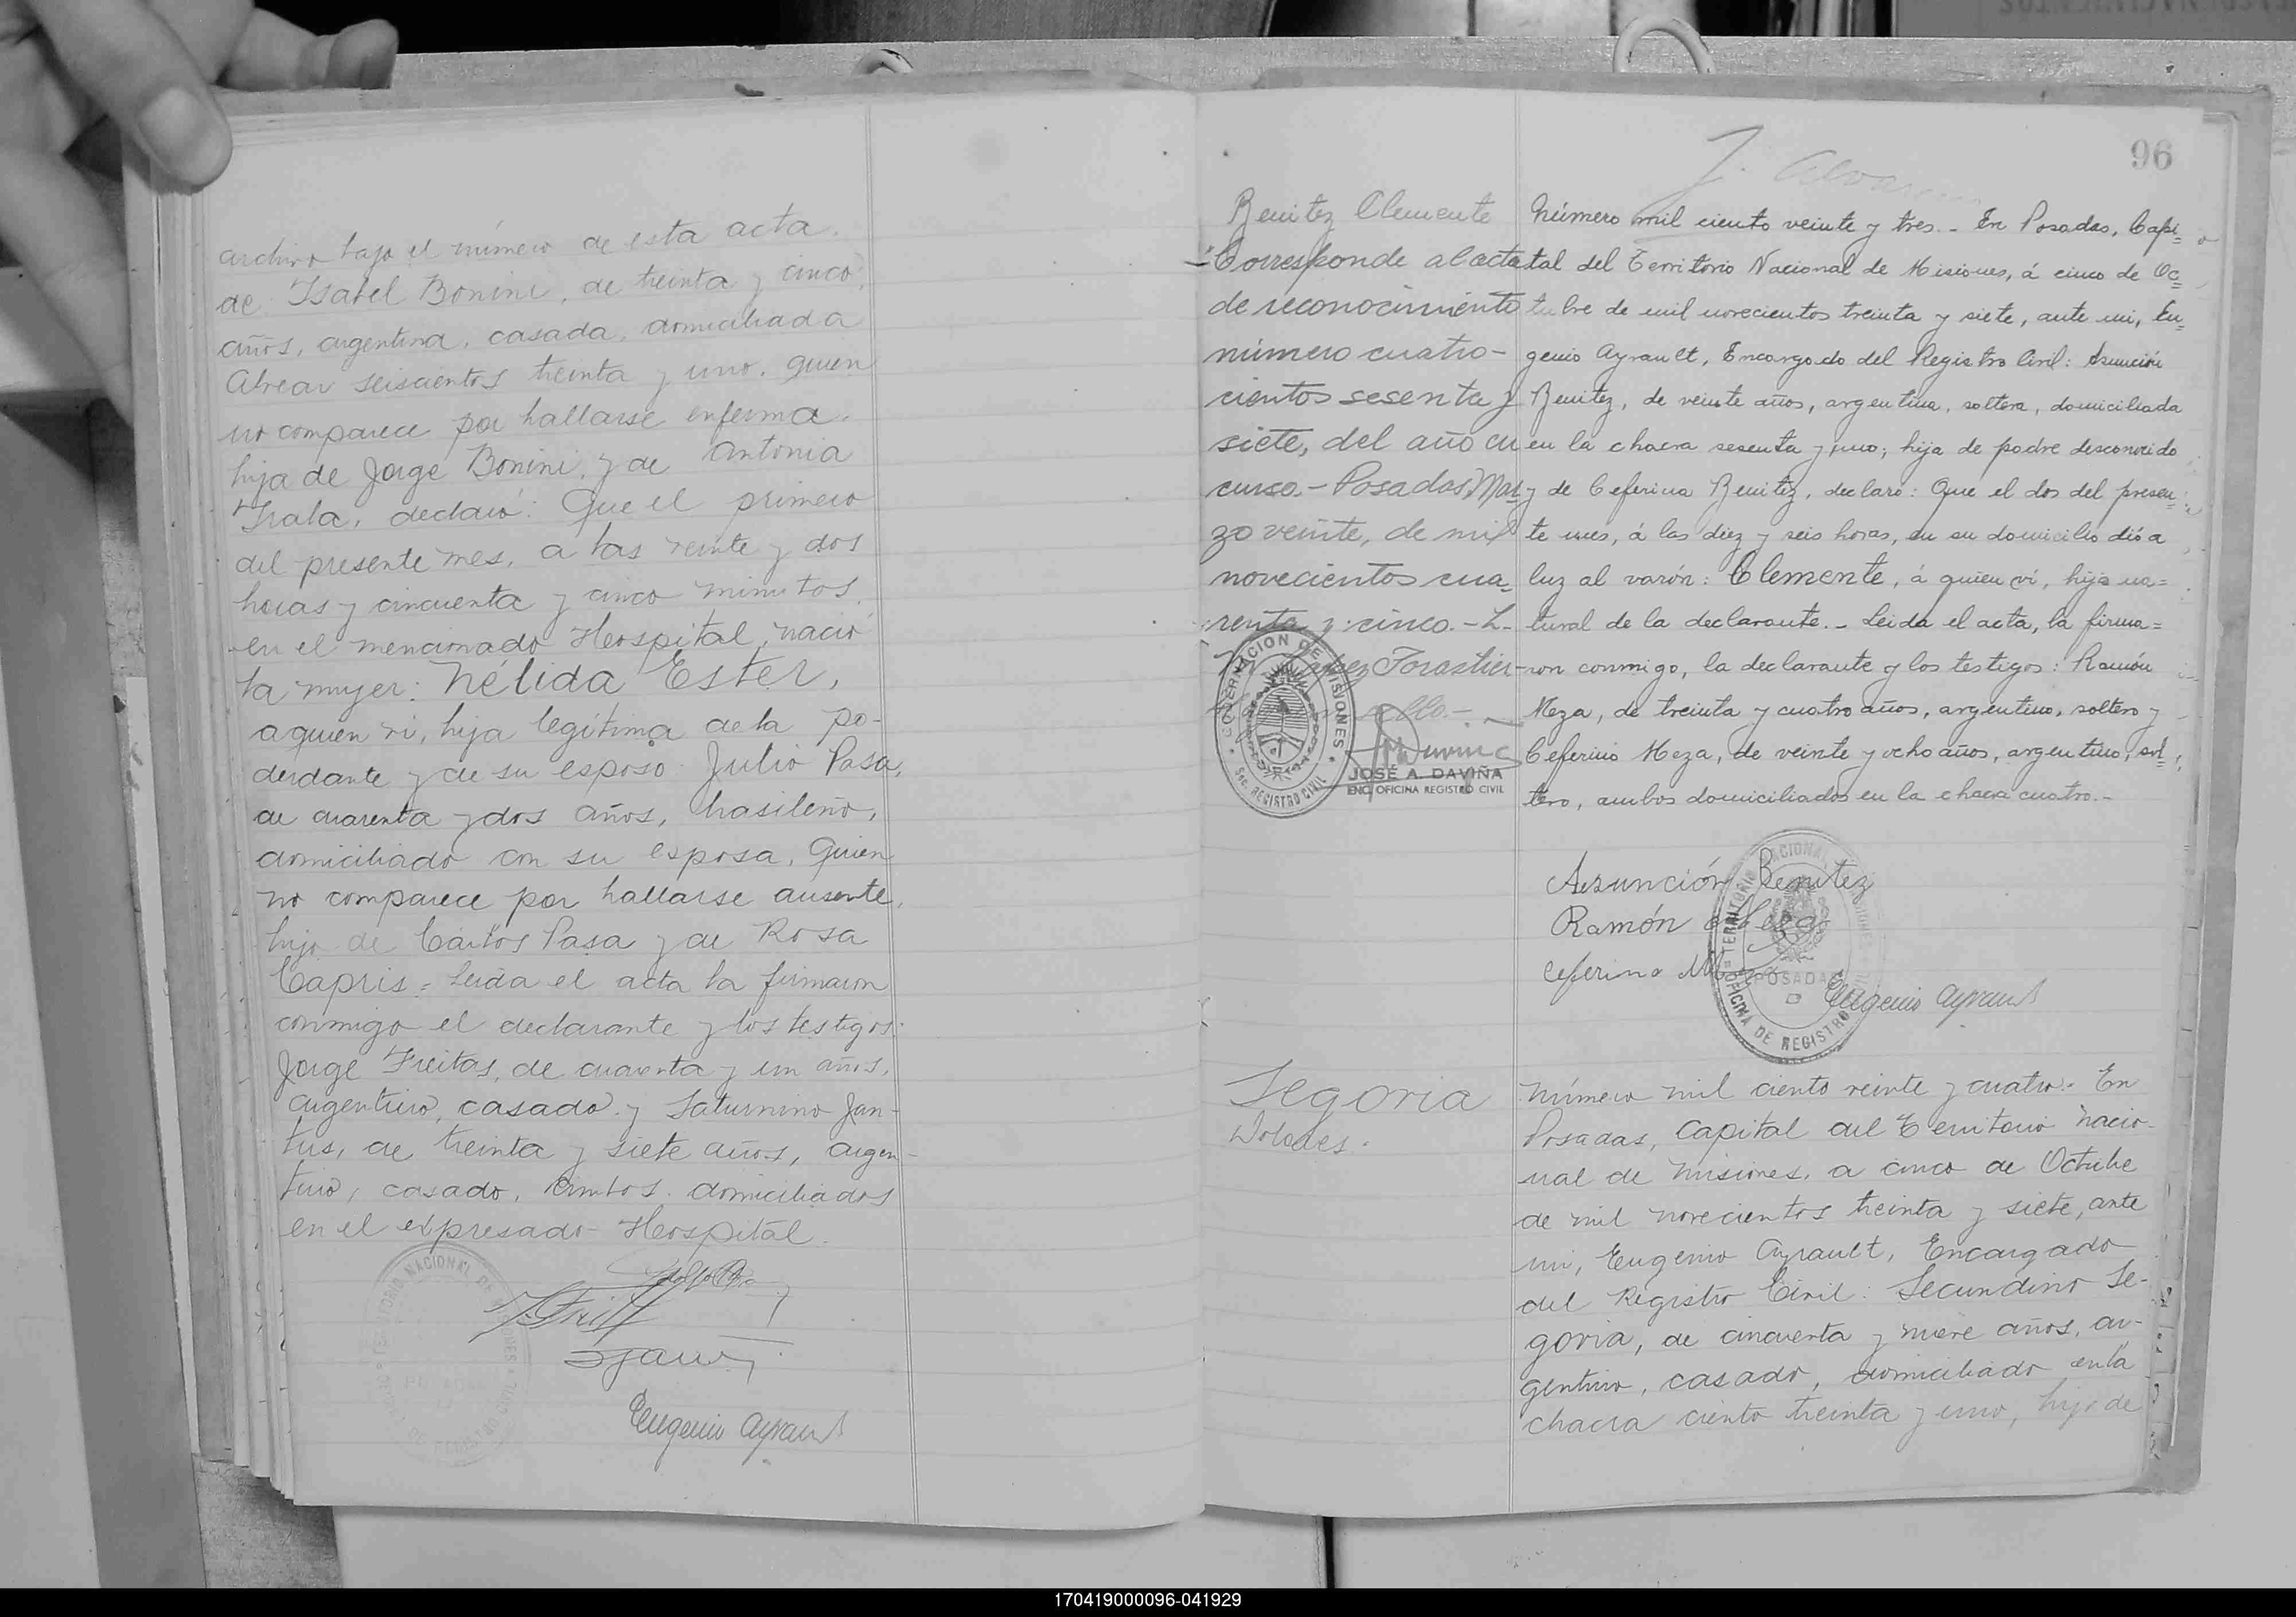 archivo bajo el número de esta acta.
de Isabel Bonini, de treinta y cinco
años, argentina, casada, domiciliada
Alvear seiscientos treinta y uno, quien
no comparece por hallarse enferma.
hija de Jorge Bonini, y de Antonia
declaró: Que el primero
del presente mes, a las veinte y dos
horas y cincuenta y cinco minutos
en el mencionado Hospital, nació
la mujer: Nélida Ester,
a quien vi, hija legítima de la po-
derdante y de su esposo Julio Pasa,
de cuarenta y dos años, brasileño,
domiciliado con su esposa, quien
no comparece por hallarse ausente,
hijo de Carlos Pasa y de Rosa
Capris = Leída el acta la firmaron
conmigo el declarante y los testigos:
Jorge Freitas, de cuarenta y un años,
argentino, casado y Saturnino Jan-
tus, de treinta y siete años, argen-
tino, casado, ambos domiciliados
en el expresado Hospital.
TERRITORIO NACIONAL DE
Eugenio Ayrault
96
J. Alva
Benitez Clemente
Corresponde al acta
de reconocimiento
número cuatro-
cientos sesenta y
siete, del año cu
curso.- Posadas, Mar
zo veinte, de mil
novecientos cua-
renta y cinco.-L-
Forastier-
GOBERNACION DE MISIONES
SEC. REGISTRO CIVIL
JOSÉ A. DAVIÑA
ENC. OFICINA REGISTRO CIVIL
Número mil ciento veinte y tres.- En Posadas, Capi=
tal del Territorio Nacional de Misiones, á cinco de Oc=
tubre de mil novecientos treinta y siete, ante mi, Eu=
genio Ayrault, Encargado del Registro Civil: Asunción
Benitez, de veinte años, argentina, soltera, domiciliada
en la chacra sesenta y uno; hija de padre desconocido
y de Ceferina Benitez, declaró: Que el dos del presen=
te mes, á las diez y seis horas, en su domicilio dió a
luz al varón: Clemente, á quien vi, hijo na=
tural de la declarante.- Leida el acta, la firma=
ron conmigo, la declarante y los testigos: Ramón
Meza, de treinta y cuatro años, argentino, soltero y
Ceferino Meza, de veinte y ocho años, argentino, sol=
tero, ambos domiciliados en la chacra cuatro.-
Asunción Benitez
Ramón Meza
Ceferino
TERRITORIO NACIONAL
POSADAS
OFICINA DE REGISTRO
Eugenio Ayrault
Segovia
Dolores.
Número mil ciento veinte y cuatro.- En
Posadas, Capital del Territorio Nacio-
nal de Misiones, a cinco de Octubre
de mil novecientos treinta y siete, ante
mi, Eugenio Ayrault, Encargado
del Registro Civil: Secundino Se-
govia, de cincuenta y nueve años, ar-
gentino, casado, domiciliado en la
chacra ciento treinta y uno, hijo de
170419000096-041929